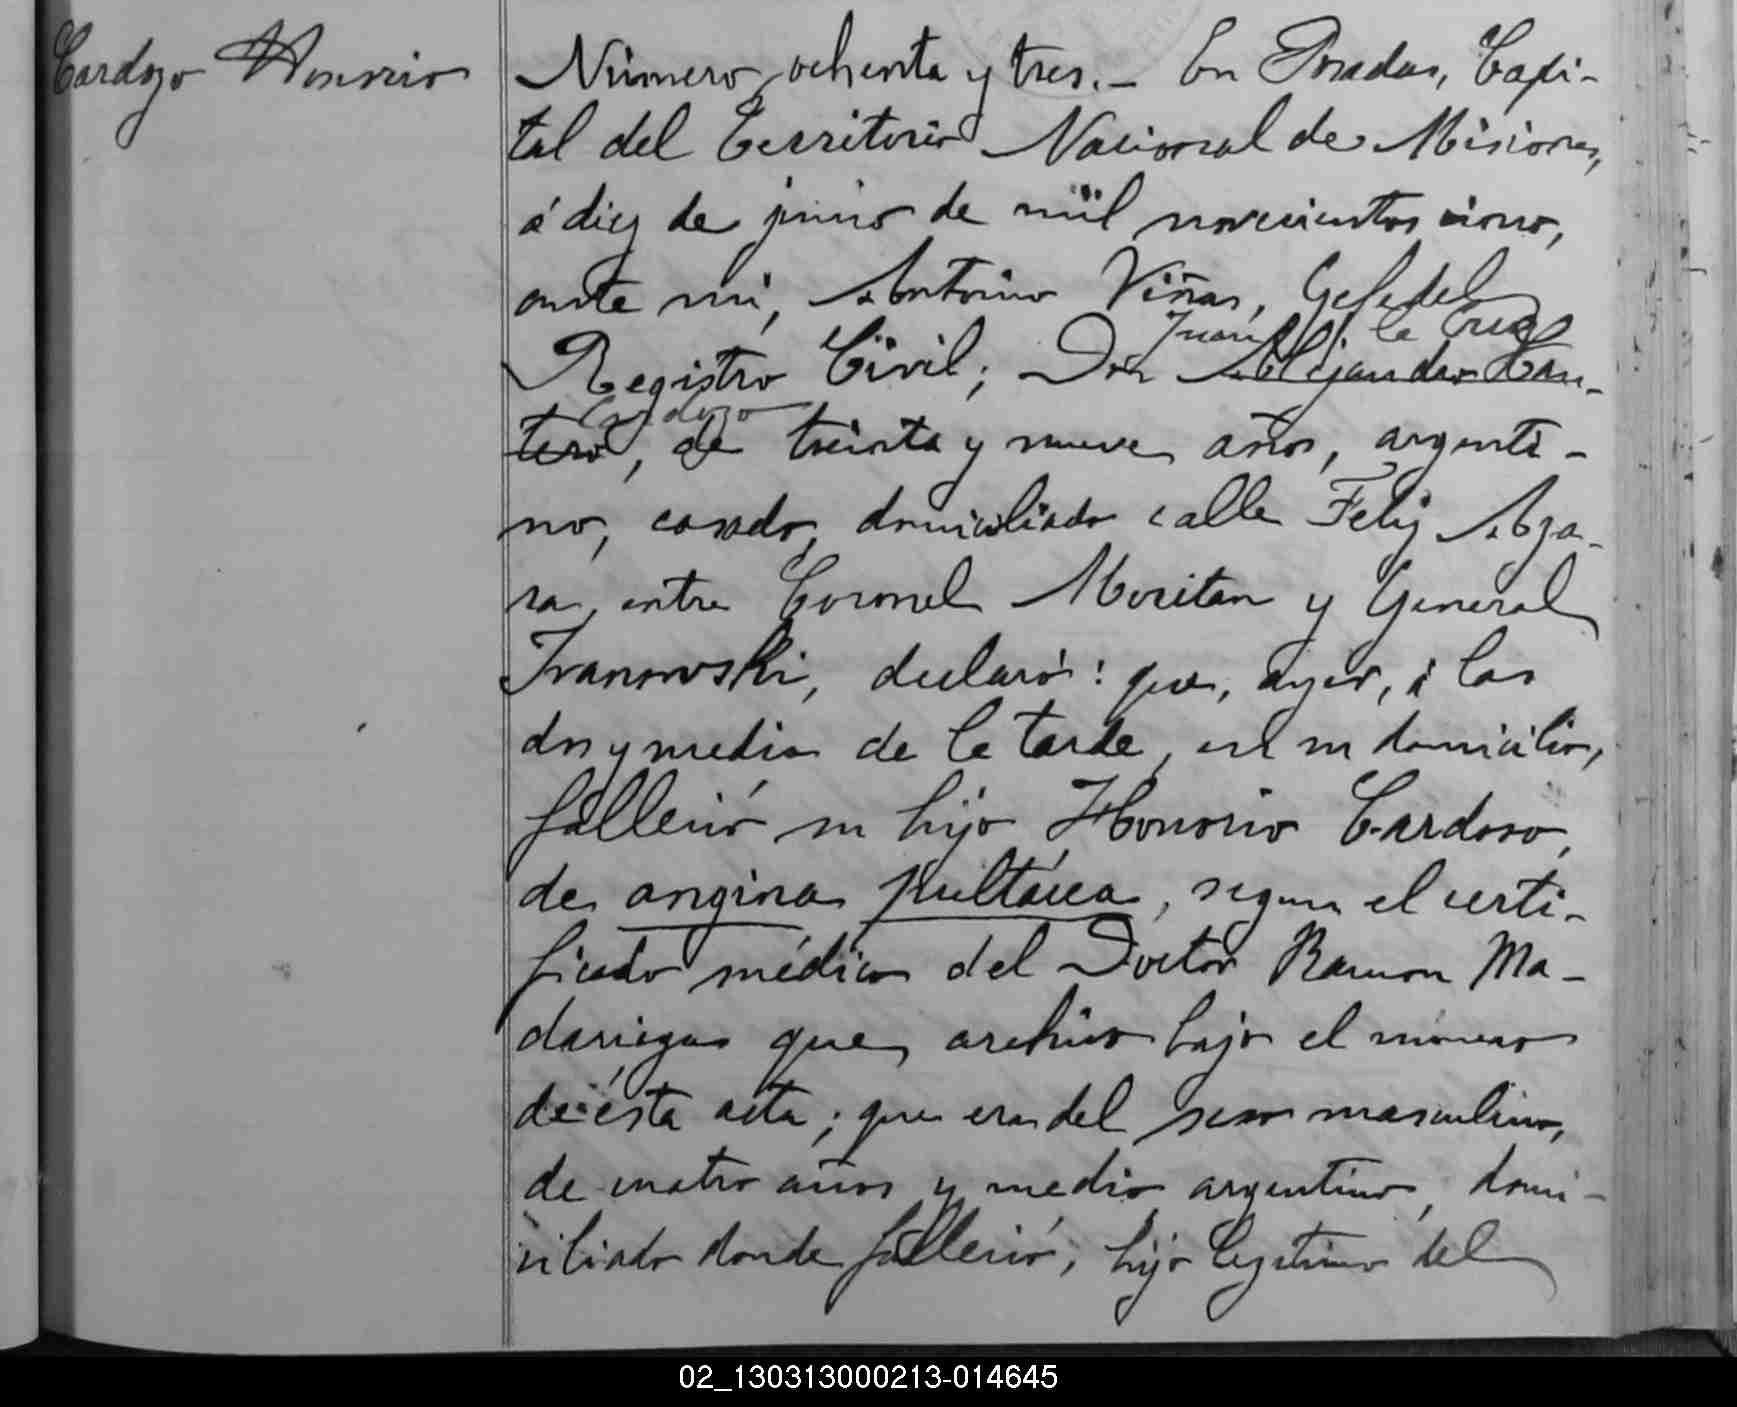 Cardozo Honorio
Número ochenta y tres.- En Posadas, Capi-
tal del Territorio Nacional de Misiones,
á diez de junio de mil novecientos cinco,
ante mi, Antonino Viñas, Gefe del
Juan de la Cruz
Registro Civil; Don Alejandro Can-
Cardozo
tero, de treinta y nueve años, argenti-
no, casado, domiciliado calle Feliz Aza-
ra, entre Coronel Moritan y General
Ivanowski, declaró: que, ayer, á las
dos y media de la tarde, en su domicilio,
falleció su hijo Honorio Cardoso,
de angina pultácea, segun el certi-
ficado médico del Doctor Ramon Ma-
dariaga que archivo bajo el número
de ésta acta; que era del sexo masculino,
de cuatro años y medio, argentino, domi-
ciliado donde falleció; hijo legitimo del
02_130313000213-014645